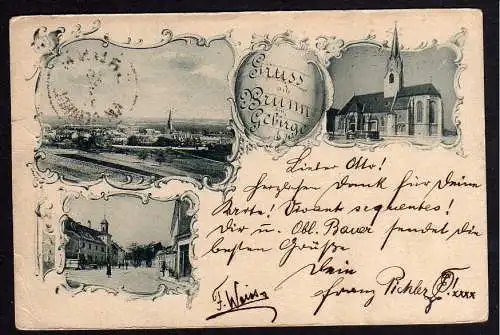 Gruss
aus
Brunn
am
Gebirge
Lieber Otto!
Herzlichen Dank für Deine
Karte! Vivant sequentes!
Dir u. Obl. Bauer sendet die
besten Grüße
Dein
Franz Pichler
F. Weiss
xxxx